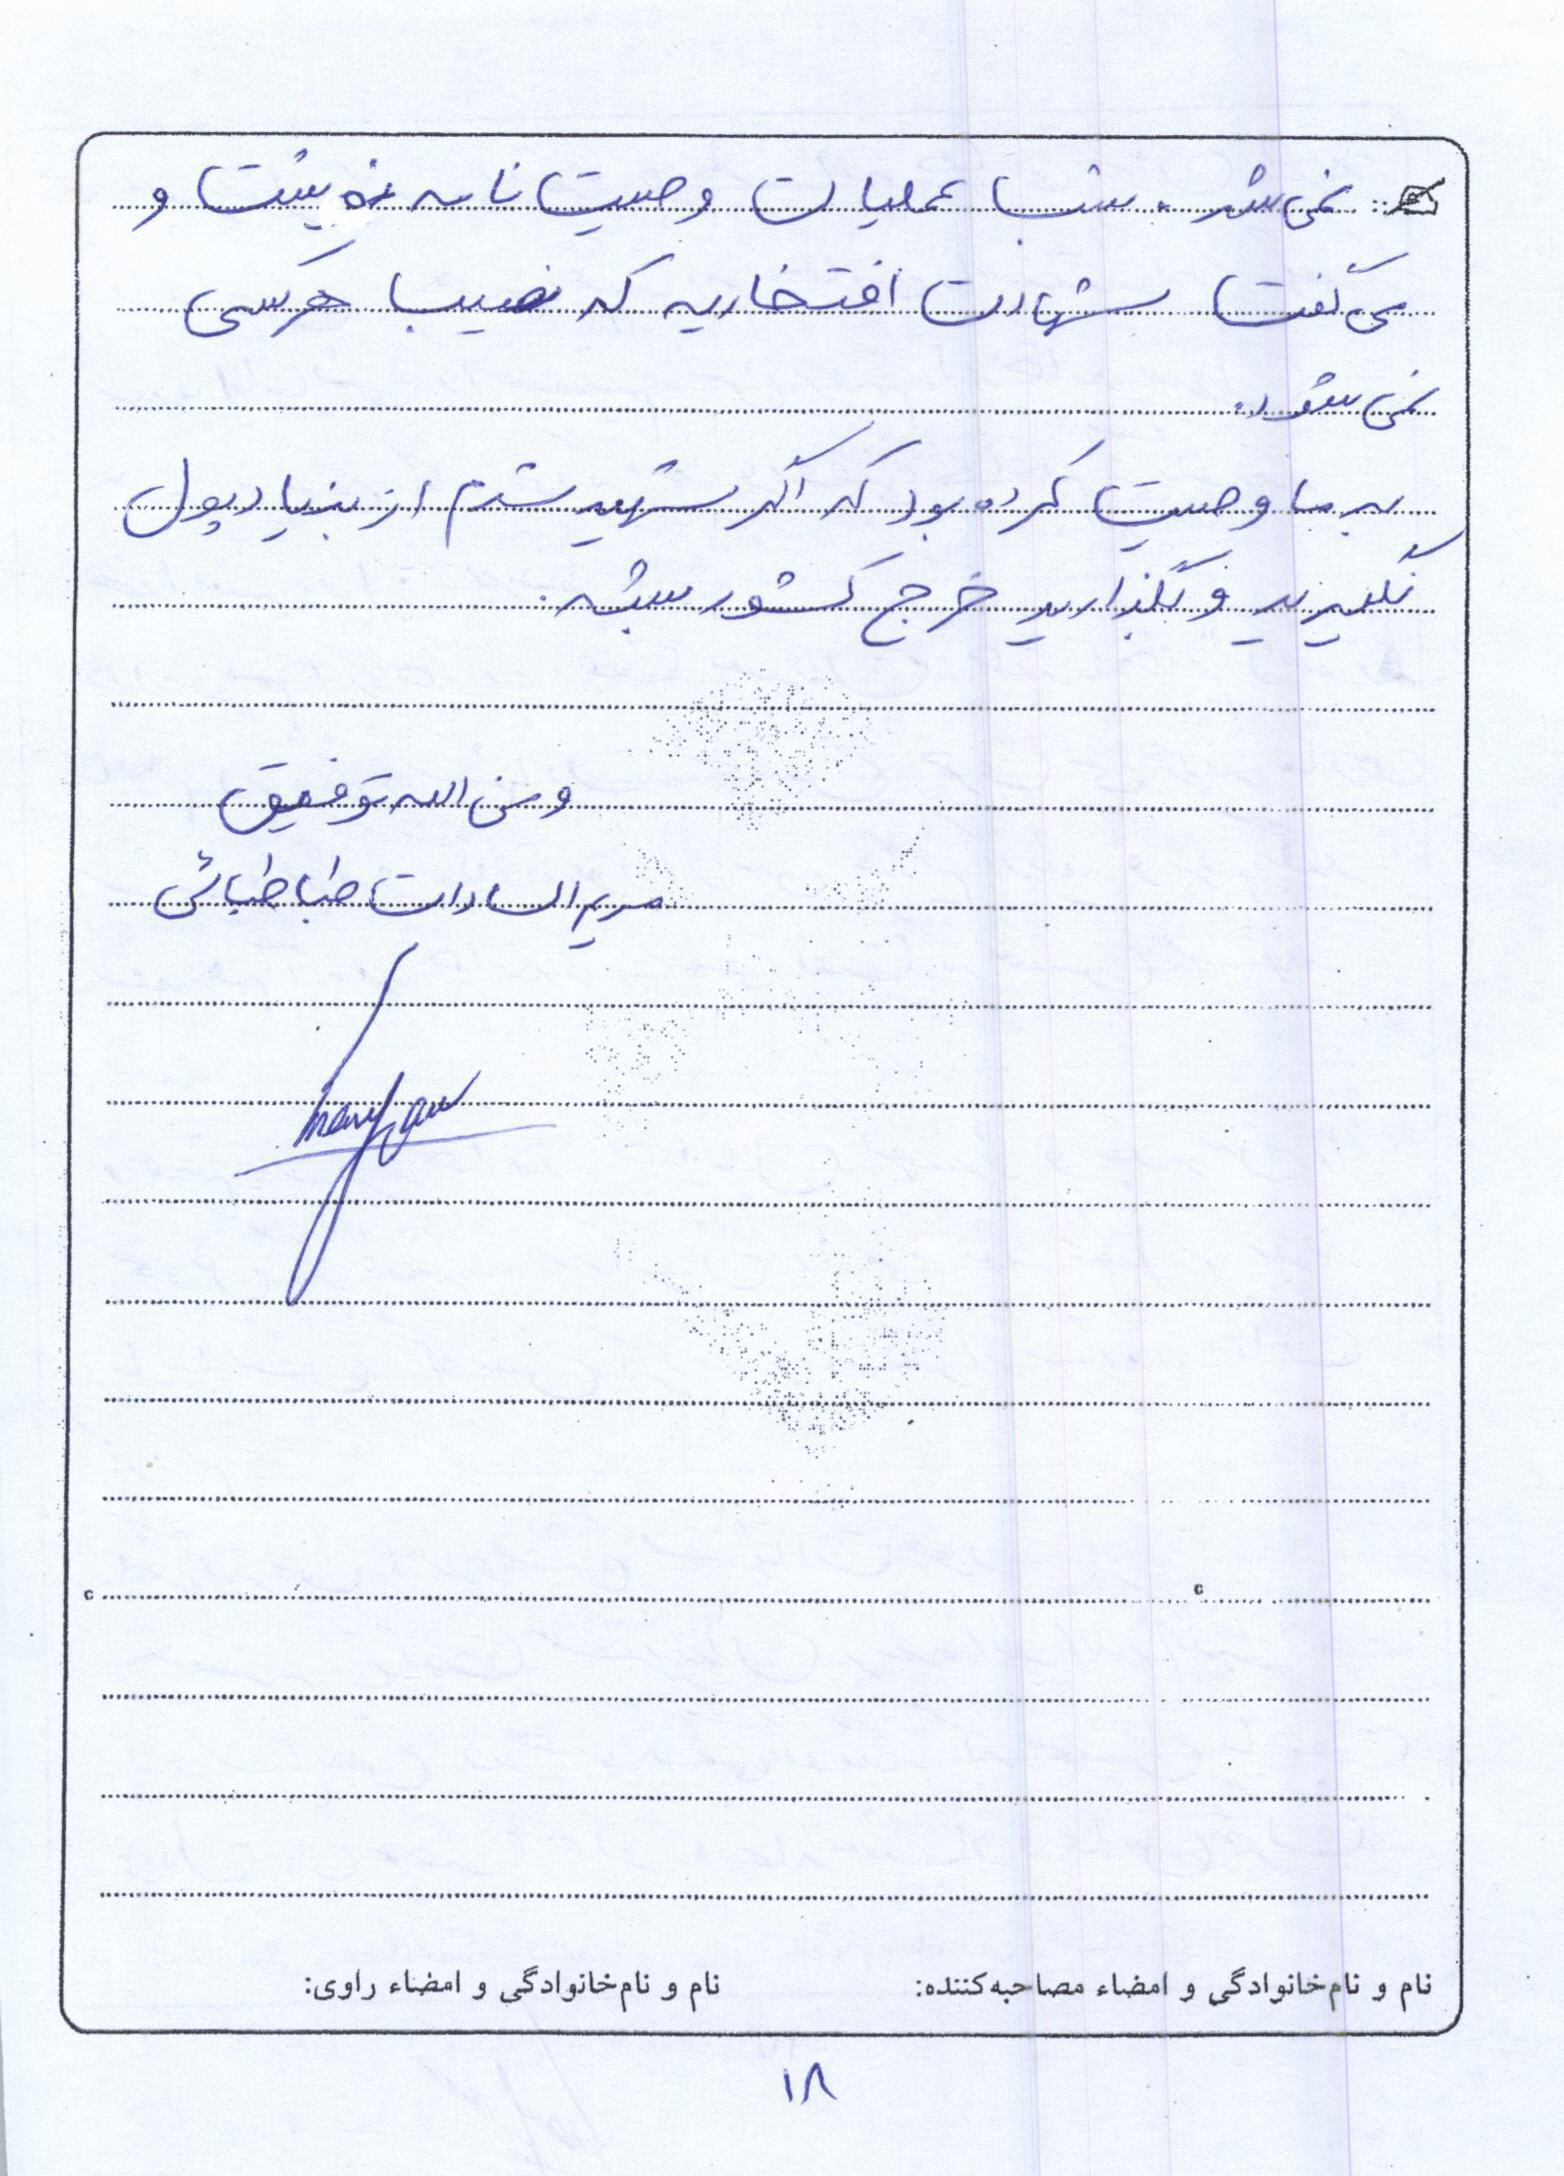 نمی شد. شب عملیات وصیت نامه نوشت و
می گفت شهادت افتخاریه که نصیب هرکسی
نمی شود.
به ما وصیت کرده بود که اگر شهید شدم از بنیاد پول
نگیرید و بگذارید خرج کشور بشه.
و من الله توفیق
مریم السادات طباطبائی
نام و نام‌خانوادگی و امضاء مصاحبه‌کننده: نام و نام‌خانوادگی و امضاء راوی:
۱۸